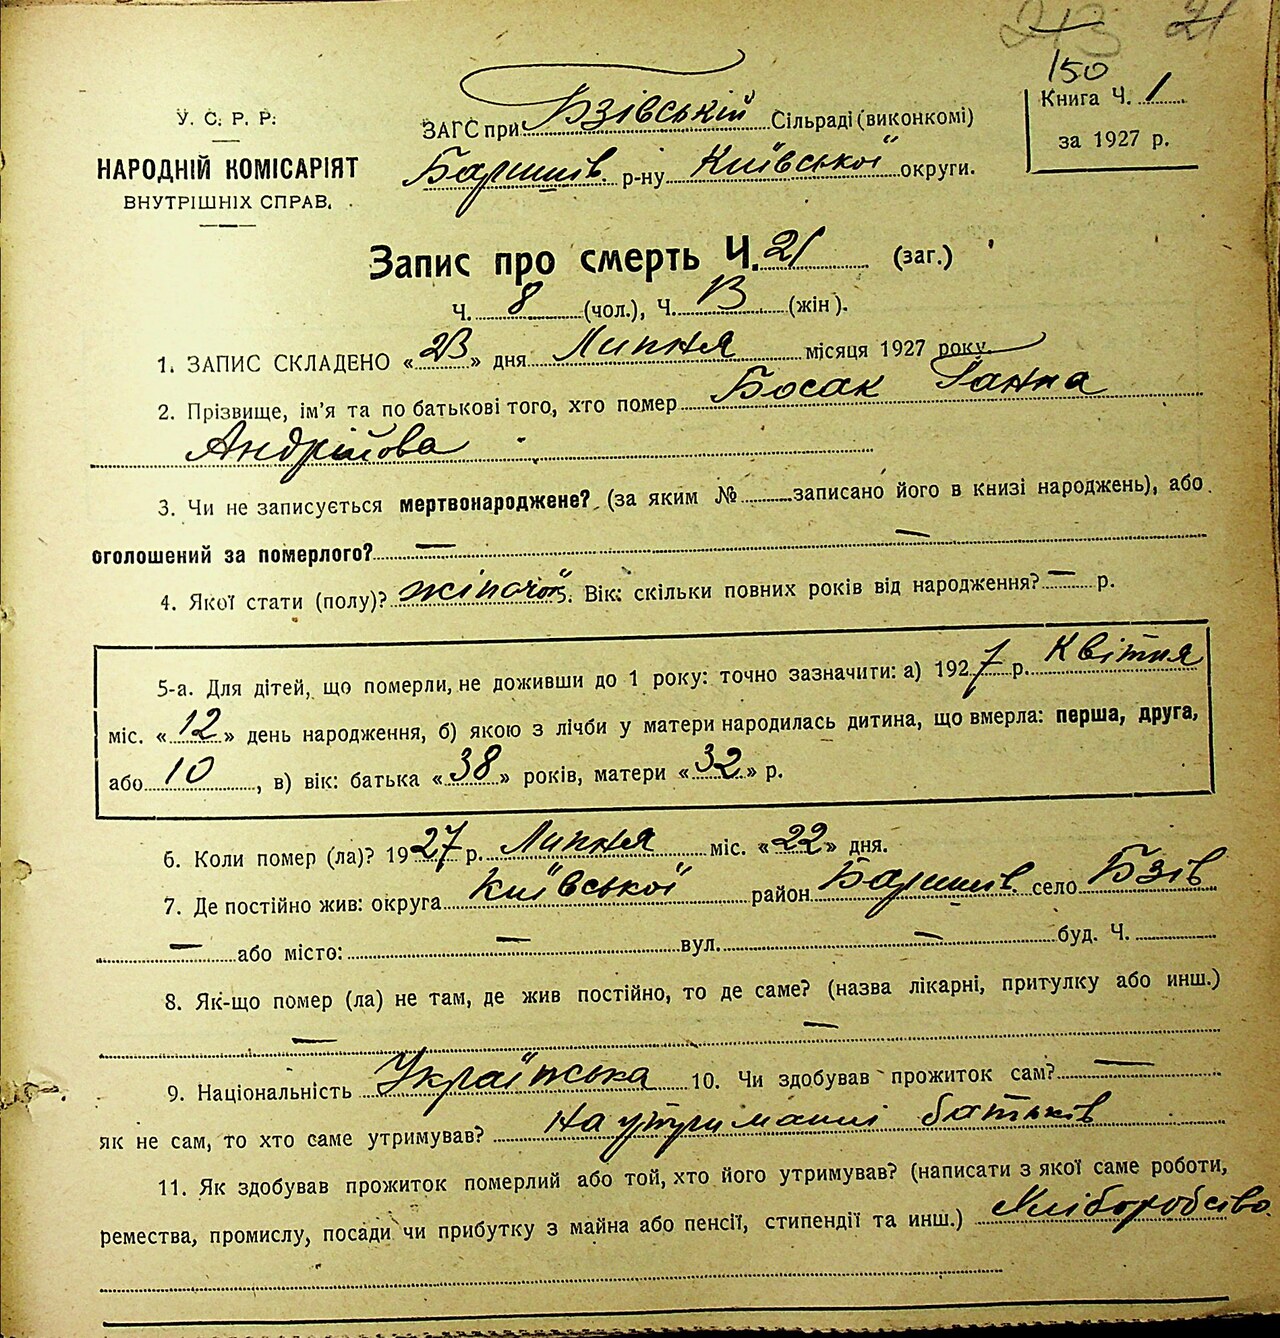 213 21
150
У. С. Р. Р.
НАРОДНІЙ КОМІСАРІЯТ
ВНУТРІШНІХ СПРАВ.
ЗАГС при Бзівській Сільраді (виконкомі)
Баришів. р-ну Київської округи.
Книга Ч. 1
за 1927 р.
Запис про смерть Ч. 21 (заг.)
Ч. 8 (чол.), Ч. 13 (жін).
1. ЗАПИС СКЛАДЕНО «23» дня Липня місяця 1927 року.
2. Прізвище, ім'я та по батькові того, хто помер Босак Ганна
Андрійова
3. Чи не записується мертвонароджене? (за яким № записано його в книзі народжень), або
оголошений за померлого? — —
4. Якої стати (полу)? жіночої 5. Вік: скільки повних років від народження? — р.
5-а. Для дітей, що померли, не доживши до 1 року: точно зазначити: а) 1927 р. Квітня
міс. «12» день народження, б) якою з лічби у матери народилась дитина, що вмерла: перша, друга,
або 10, в) вік: батька «38» років, матери «32» р.
6. Коли помер (ла)? 1927 р. Липня міс. «22» дня.
7. Де постійно жив: округа Київської район Баришів. село Бзів
— або місто: — вул. — буд. Ч.
8. Як-що помер (ла) не там, де жив постійно, то де саме? (назва лікарні, притулку або инш.)
— —
9. Національність Українська 10. Чи здобував прожиток сам? —
як не сам, то хто саме утримував? На утриманні батьків
11. Як здобував прожиток померлий або той, хто його утримував? (написати з якої саме роботи,
ремества, промислу, посади чи прибутку з майна або пенсії, стипендії та инш.) Хліборобство